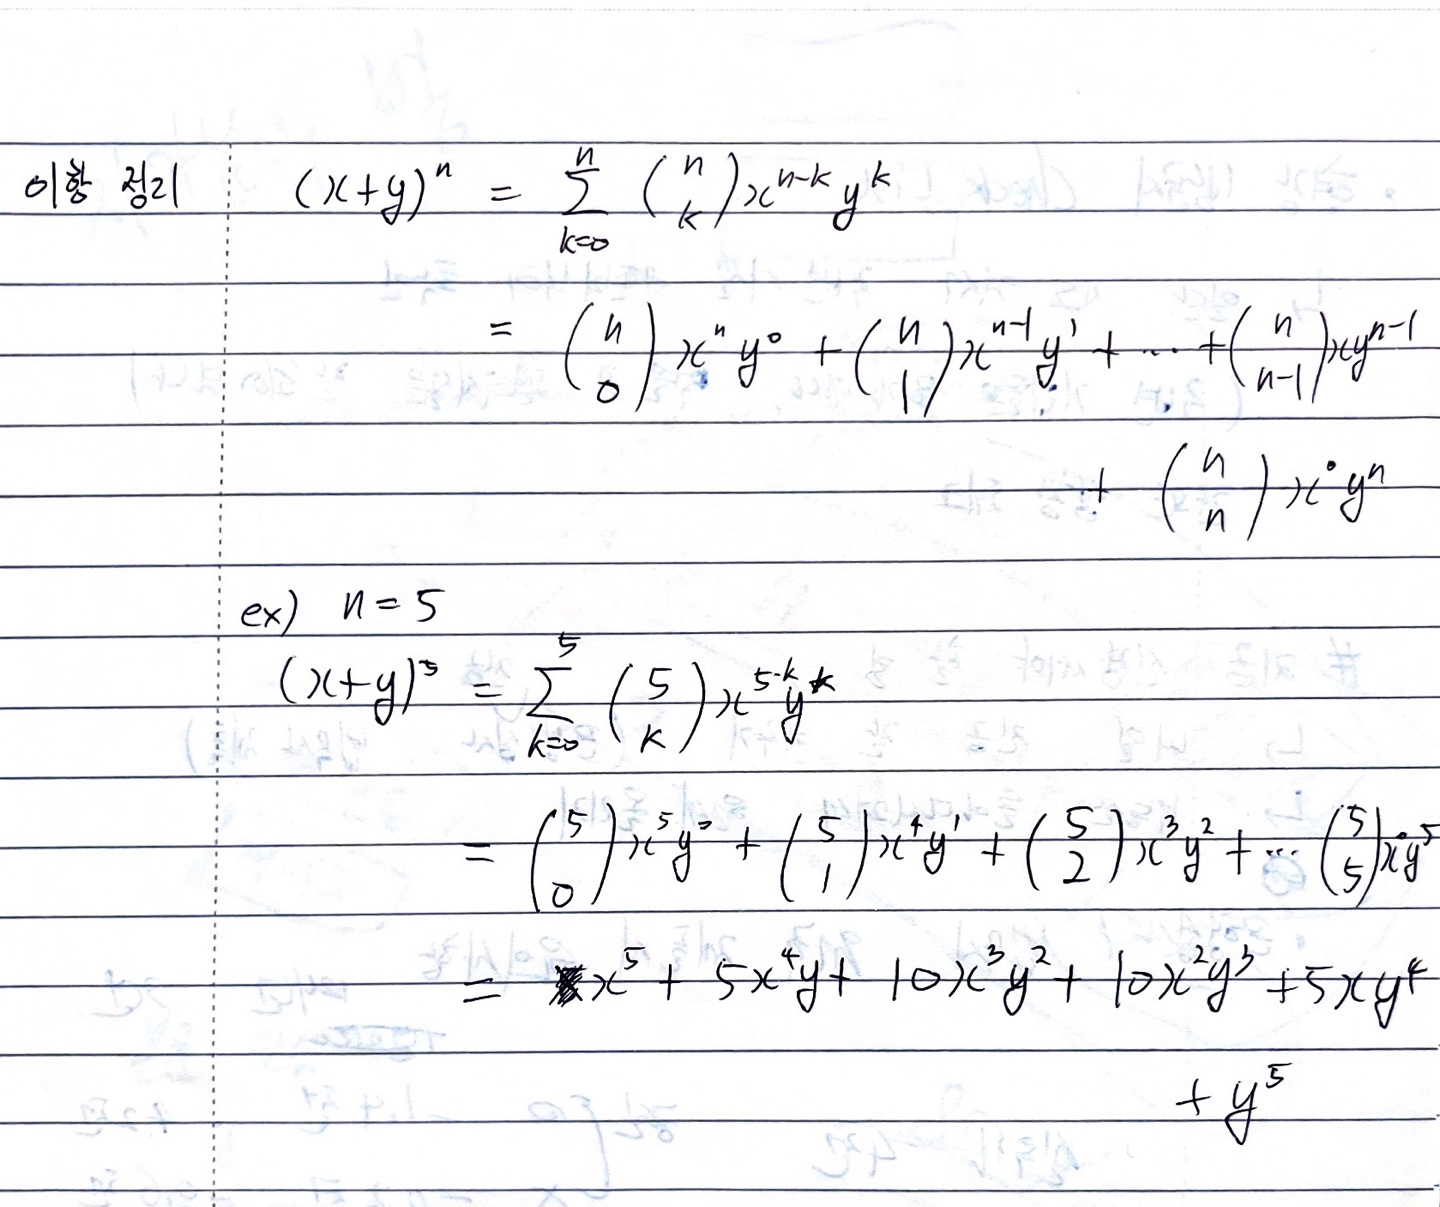 이항 정리 (x+y)^n = \sum_{k=0}^{n} \binom{n}{k} x^{n-k} y^k
= \binom{n}{0} x^n y^0 + \binom{n}{1} x^{n-1} y^1 + ... + \binom{n}{n-1} x y^{n-1}
+ \binom{n}{n} x^0 y^n
ex) n = 5
(x+y)^5 = \sum_{k=0}^{5} \binom{5}{k} x^{5-k} y^k
= \binom{5}{0} x^5 y^0 + \binom{5}{1} x^4 y^1 + \binom{5}{2} x^3 y^2 + ... \binom{5}{5} x^0 y^5
= x^5 + 5x^4 y + 10x^3 y^2 + 10x^2 y^3 + 5xy^4
+ y^5